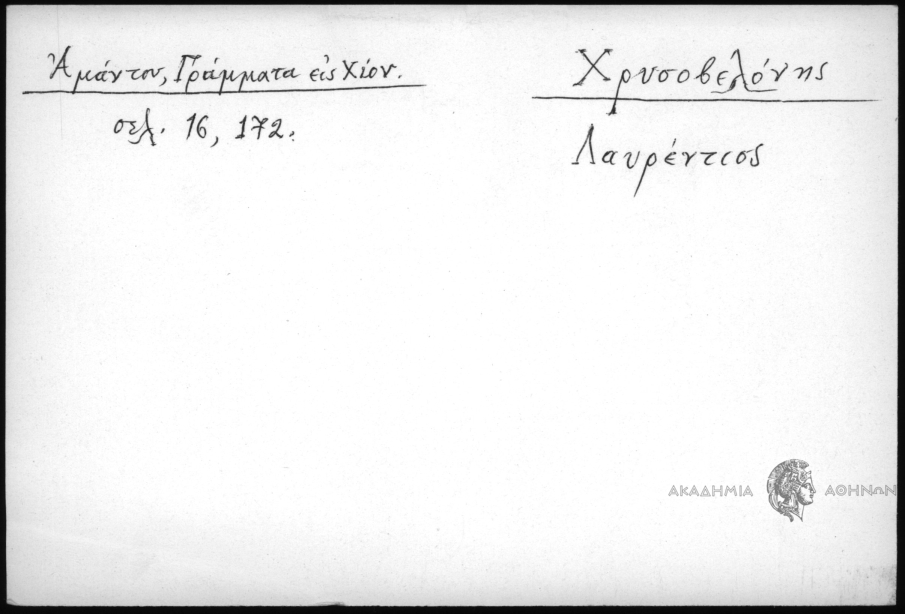 Ἀμάντου, Γράμματα εἰς Χίον.
σελ. 16, 172.
Χρυσοβελόνης
Λαυρέντιος
ΑΚΑΔΗΜΙΑ ΑΘΗΝΩΝ